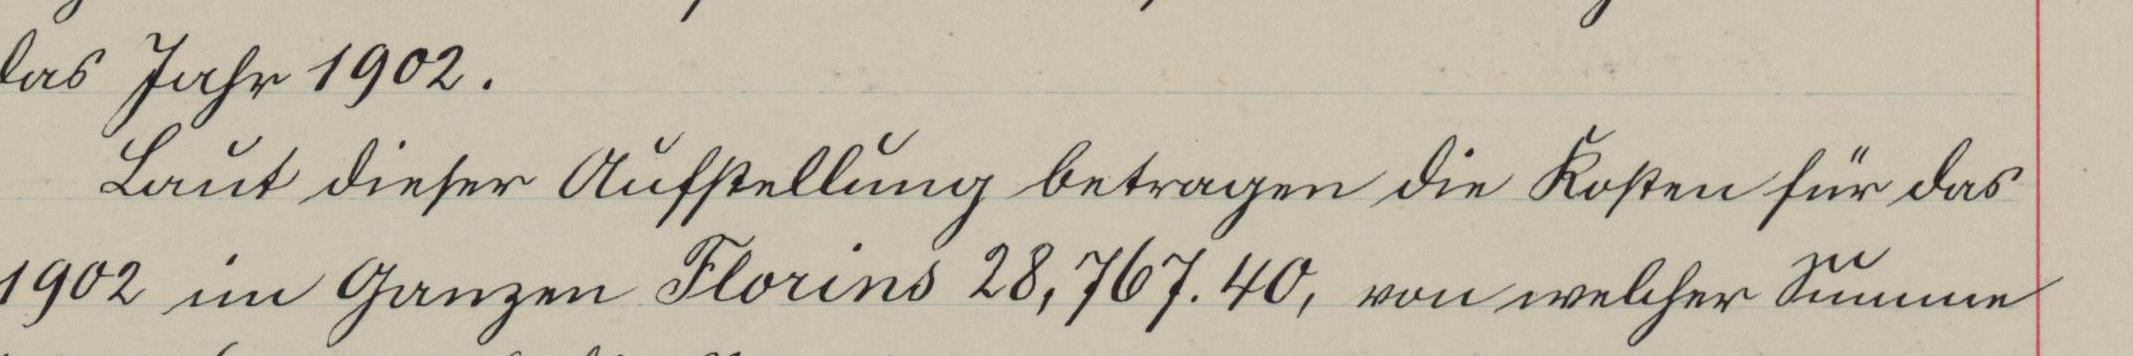 das Jahr 1902.
Laut dieser Aufstellung betragen die Kosten für das
1902 im Ganzen Florins 28,767.40, von welcher Summe